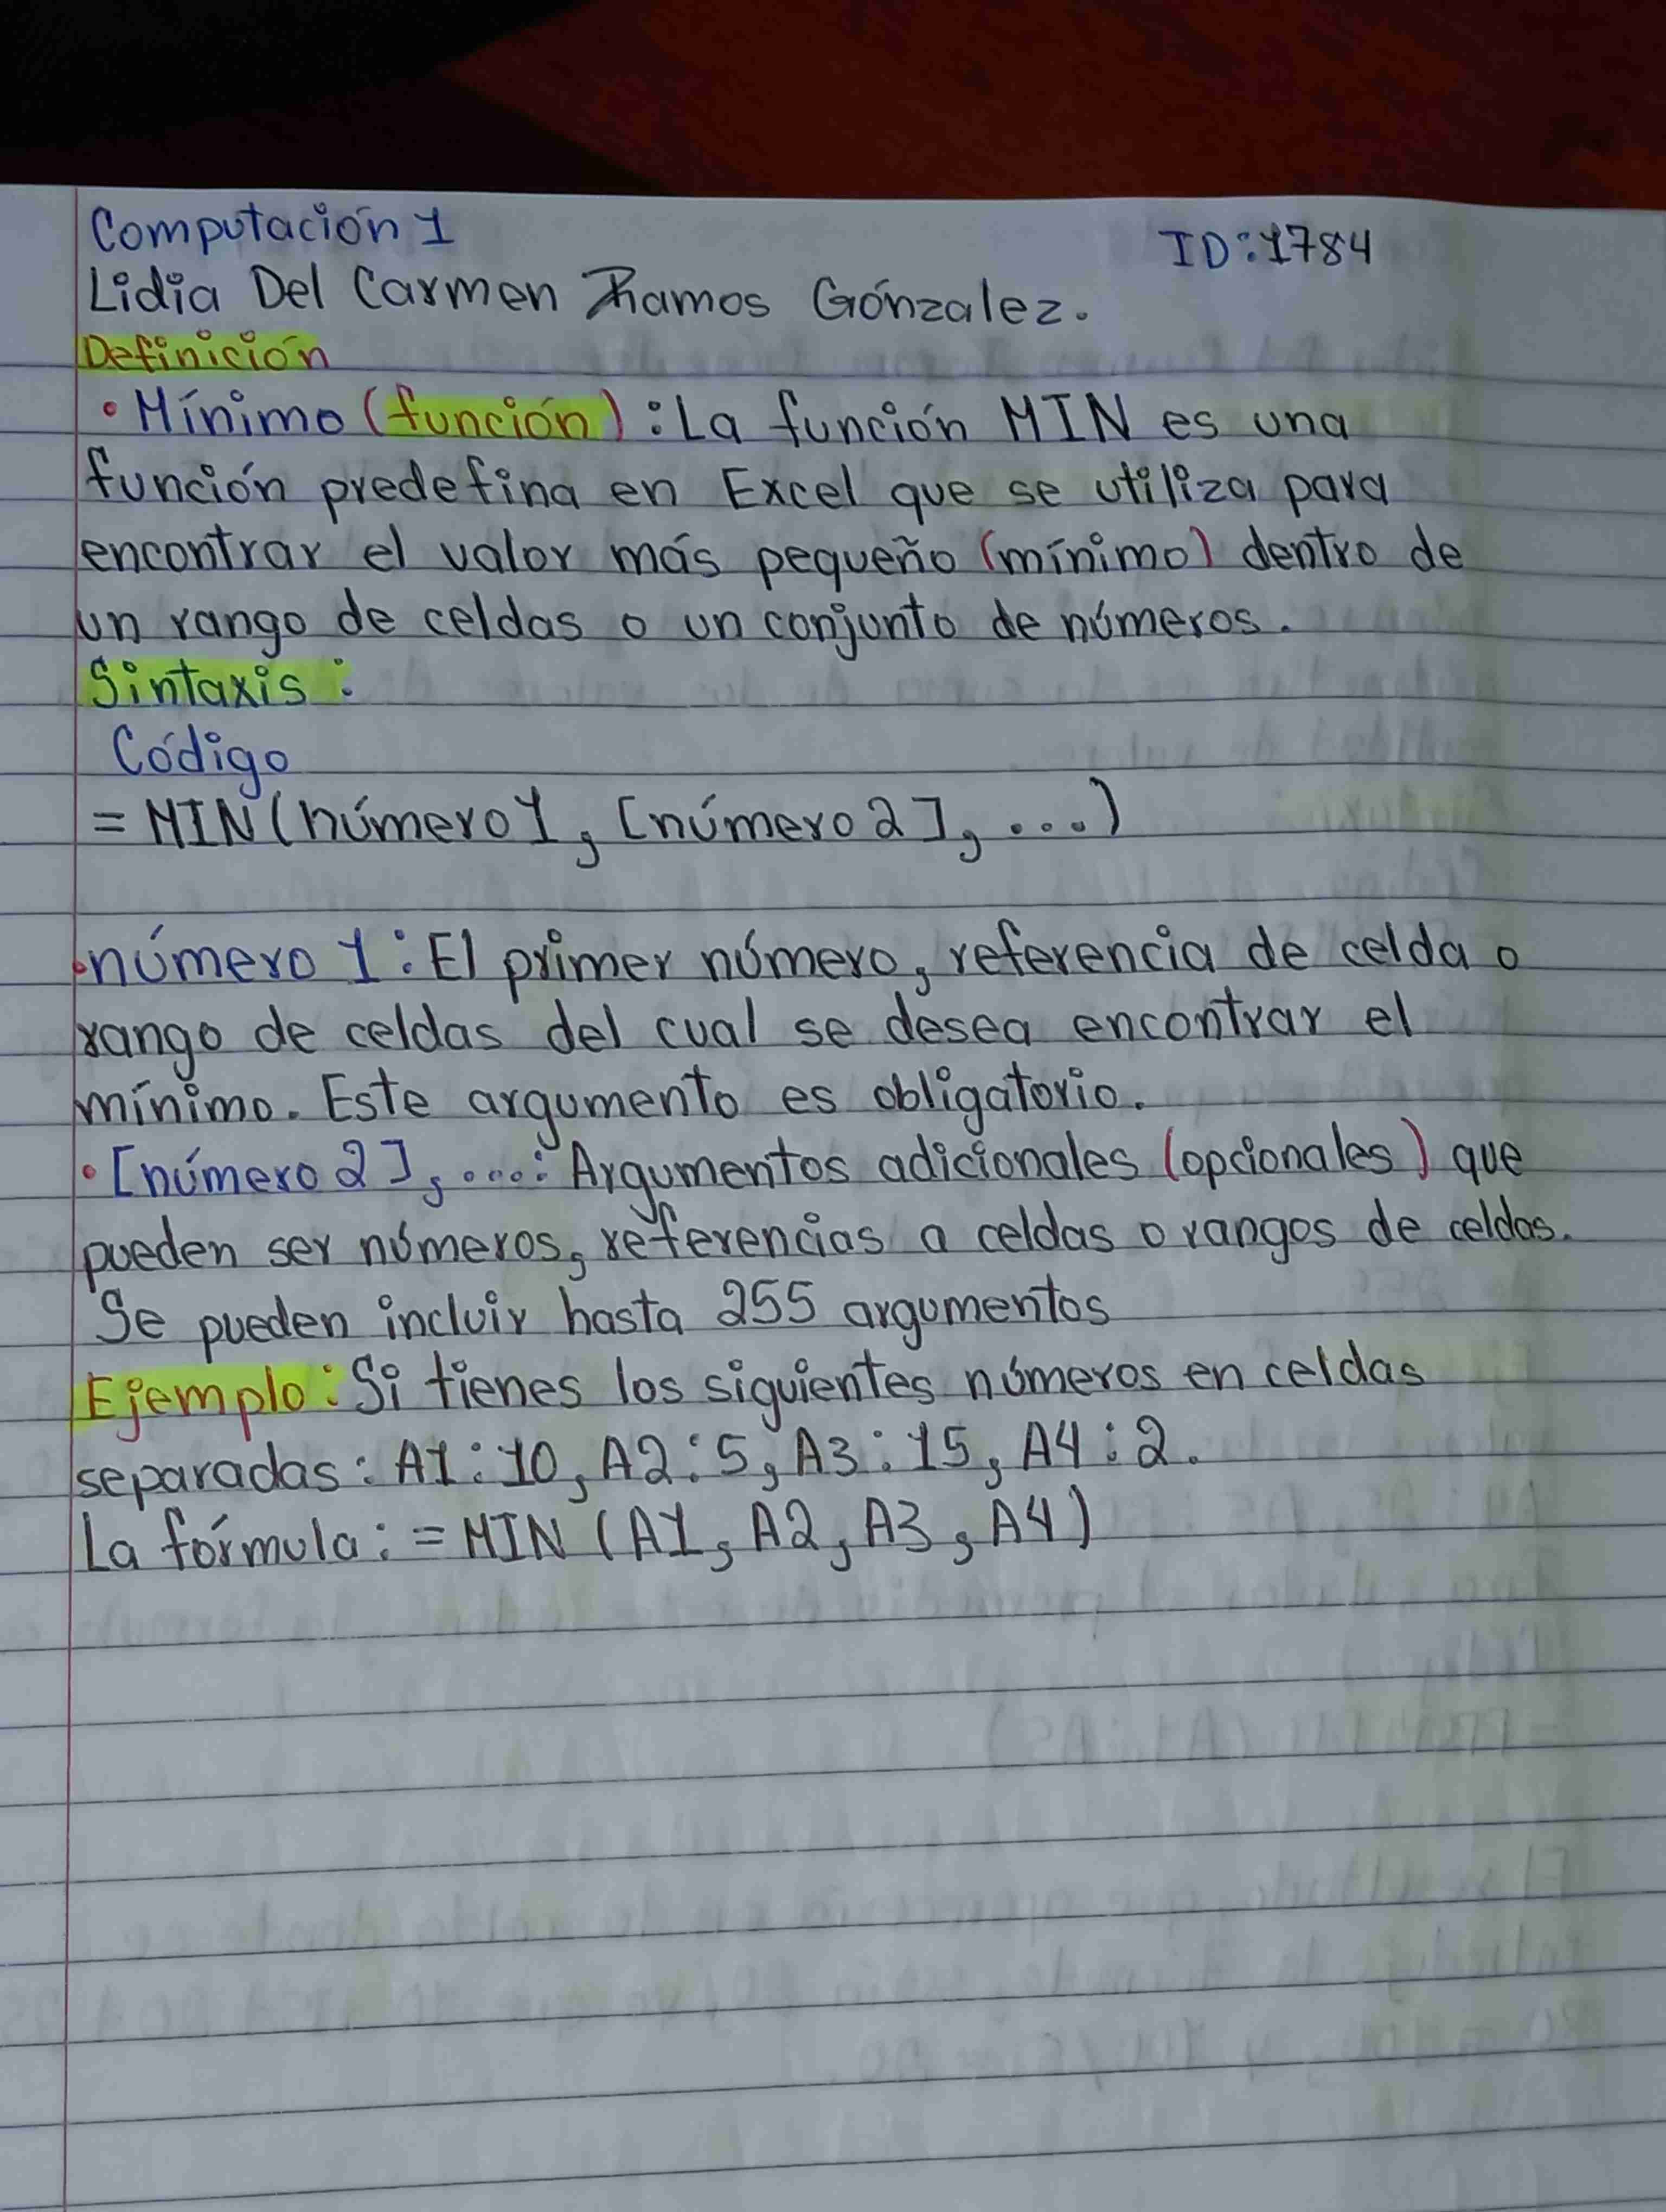 Computación 1
ID:1784
Lidia Del Carmen Ramos Gónzalez.
Definición
• Mínimo (función): La función MIN es una
función predefina en Excel que se utiliza para
encontrar el valor más pequeño (mínimo) dentro de
un rango de celdas o un conjunto de números.
Sintaxis:
Código
= MIN(número1, [número2], ...)
• número 1: El primer número, referencia de celda o
rango de celdas del cual se desea encontrar el
mínimo. Este argumento es obligatorio.
• [número 2], ...: Argumentos adicionales (opcionales) que
pueden ser números, referencias a celdas o rangos de celdas.
Se pueden incluir hasta 255 argumentos
Ejemplo: Si tienes los siguientes números en celdas
separadas: A1:10, A2:5, A3:15, A4:2.
La fórmula: =MIN (A1, A2, A3, A4)